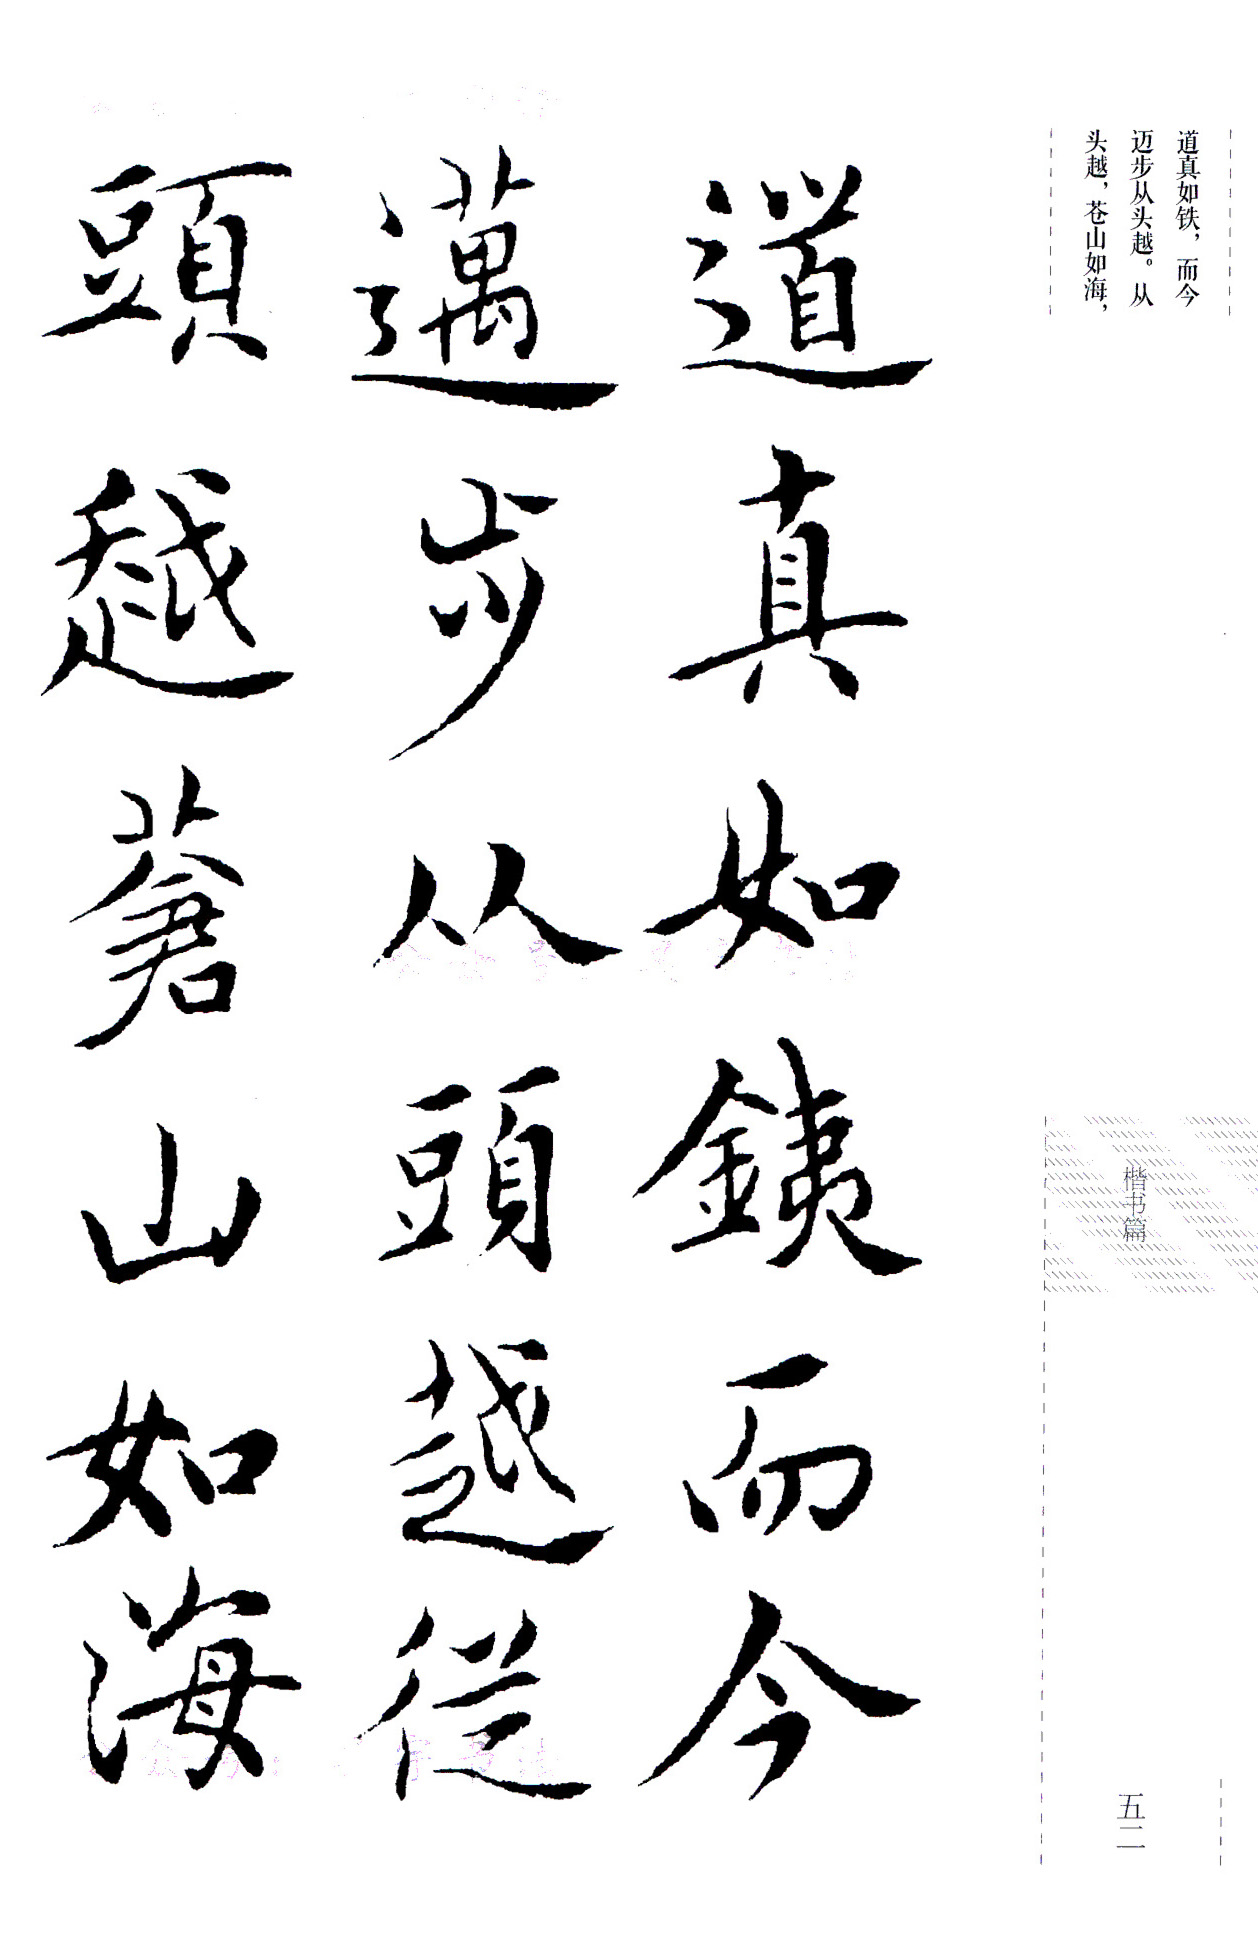 道真如铁，而今
迈步从头越。从
头越，苍山如海，
楷书篇
五二
道真如鐵而今
邁步从頭越從
頭越蒼山如海